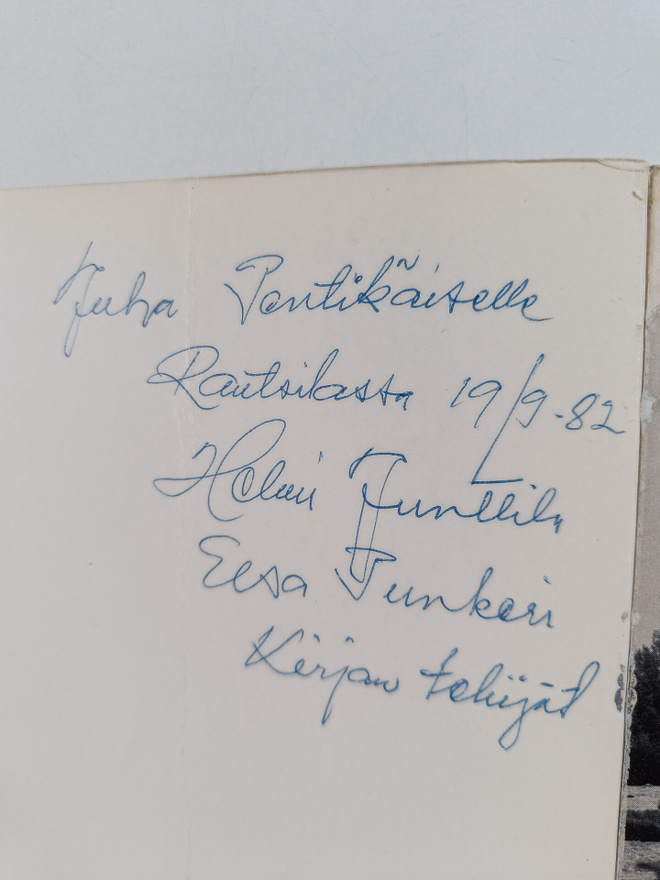 Juha Pentikäiselle
Rantsilassa 19/9-82
Helmi Junttila
Eesa Junkari
Kirjan tekijät